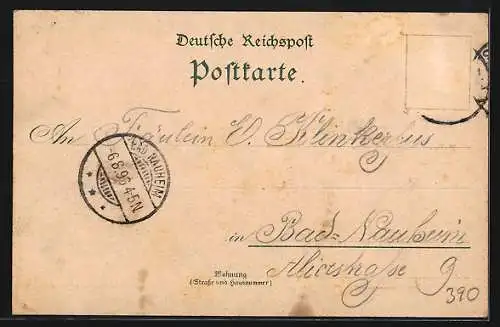 Deutsche Reichspost
Postkarte.
An Fräulein E. Klinkerfus
BAD NAUHEIM
6.8.96 4-5N
in Bad-Nauheim
Alicestraße 9
Wohnung
(Straße und Hausnummer)
390